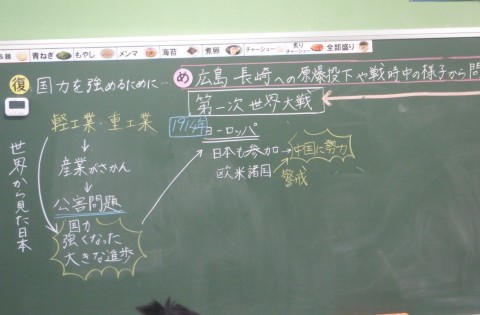 青ねぎ もやし メンマ 海苔 煮卵 チャーシュー 炙りチャーシュー 全部盛り
復 国力を強めるために…
め 広島 長崎への原爆投下や戦時中の様子から問
第一次世界大戦
軽工業・重工業
1914年 ヨーロッパ
世界から見た日本
産業がさかん
公害問題
国力
強くなった
大きな進歩
日本も参加→中国に勢力
欧米諸国 警戒